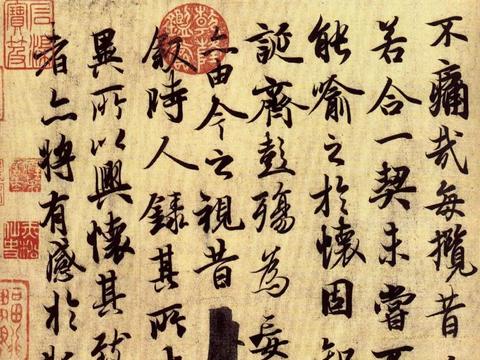 不痛哉每攬昔
若合一契未嘗不
能喻之於懷固知
誕齊彭殤為妄
亦由今之視昔
叙時人錄其所
異所以興懷其致
者亦將有感於
乾隆鑑賞